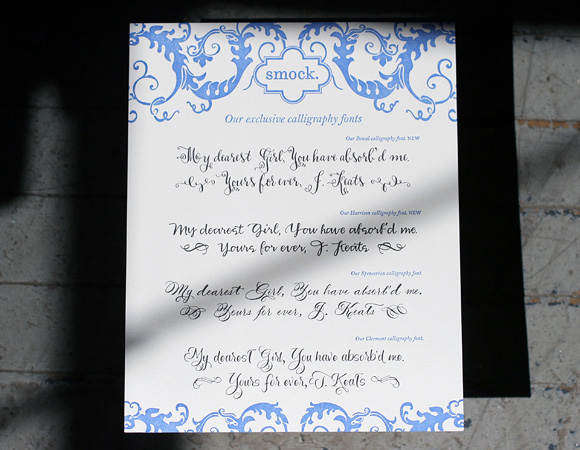 smock.
Our exclusive calligraphy fonts
Our Bouval calligraphy font. NEW
My dearest Girl, You have absorb'd me.
Yours for ever, J. Keats
Our Harrison calligraphy font. NEW
My dearest Girl, You have absorb'd me.
Yours for ever, J. Keats
Our Spencerian calligraphy font.
My dearest Girl, You have absorb'd me.
Yours for ever, J. Keats
Our Clermont calligraphy font.
My dearest Girl, You have absorb'd me.
Yours for ever, J. Keats